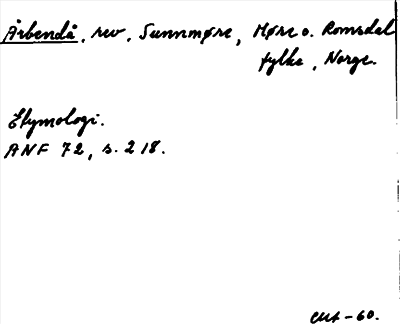 Årbendå, rev, Sunnmøre, Møre o. Romsdal
fylke, Norge.
Etymologi.
ANF 72, s. 218.
-60.